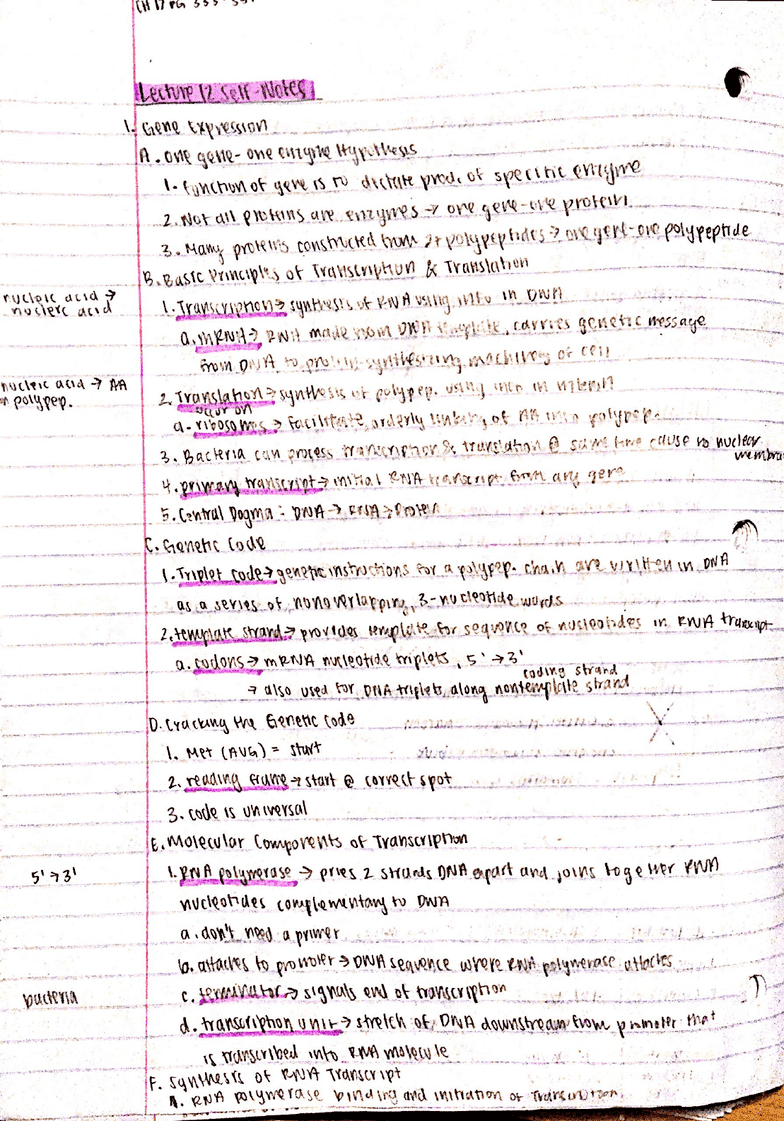 CH 17 PG 335-
Lecture 12 Self-Notes
I. Gene Expression
A. One gene-one enzyme Hypothesis
1. Function of gene is to dictate prod. of specific enzyme
2. Not all proteins are enzymes → one gene-one protein
3. Many proteins constructed from 2+ polypeptides → one gene-one polypeptide
B. Basic Principles of Transcription & Translation
nucleic acid →
nucleic acid
1. Transcription → synthesis of RNA using info in DNA
a. mRNA → RNA made from DNA template, carries genetic message
from DNA to protein-synthesizing machinery of cell
nucleic acid → AA
polypep.
2. Translation → synthesis of polypep. using info in mRNA
occur on
a. ribosomes → facilitate orderly linking of AA into polypep.
3. Bacteria can process transcription & translation @ same time cause no nuclear
membra
4. primary transcript → initial RNA transcript from any gene
5. Central Dogma: DNA → RNA → Protein
C. Genetic Code
1. Triplet code → genetic instructions for a polypep. chain are written in DNA
as a series of nonoverlapping, 3-nucleotide words
2. template strand → provides template for sequence of nucleotides in RNA transcript
a. codons → mRNA nucleotide triplets, 5' → 3'
coding strand
→ also used for DNA triplets along nontemplate strand
D. Cracking the Genetic Code
1. Met (AUG) = start
2. reading frame → start @ correct spot
3. code is universal
E. Molecular Components of Transcription
5' → 3'
1. RNA polymerase → pries 2 strands DNA apart and joins together RNA
nucleotides complementary to DNA
a. don't need a primer
b. attaches to promoter → DNA sequence where RNA polymerase attaches
bacteria
c. terminator → signals end of transcription
d. transcription unit → stretch of DNA downstream from promoter that
is transcribed into RNA molecule
F. Synthesis of RNA Transcript
A. RNA polymerase binding and initiation of Transcription